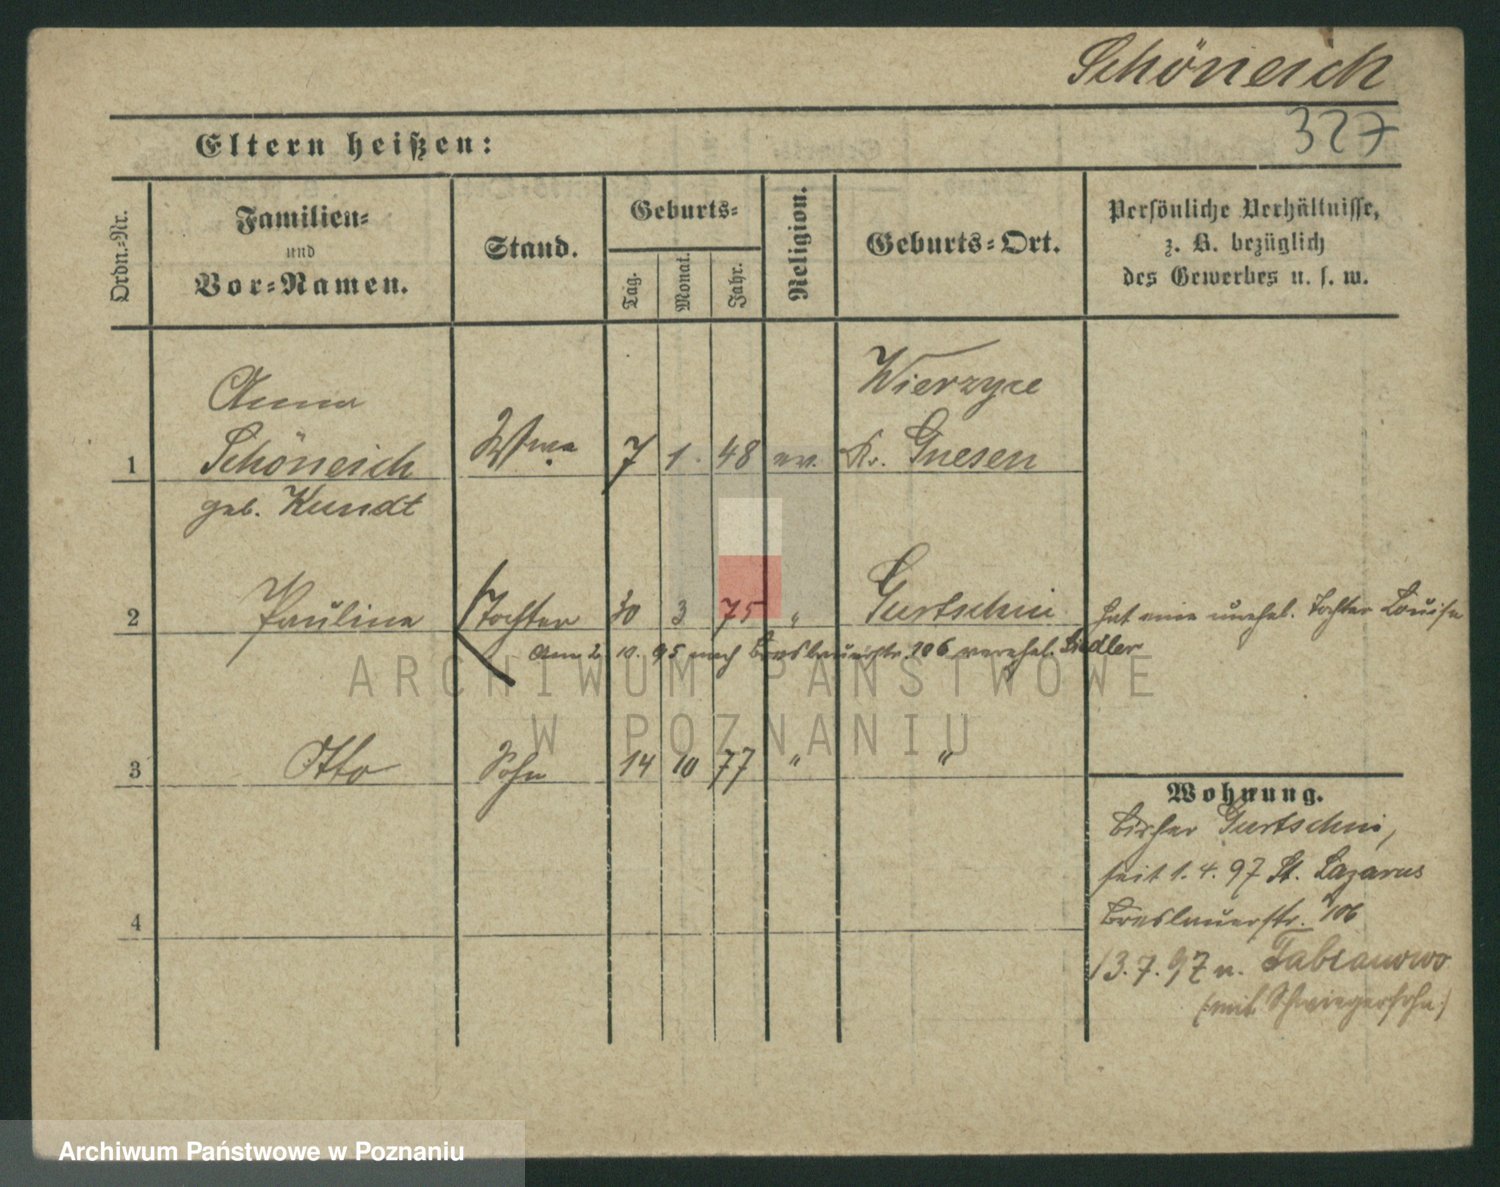 Schöneich
327
Eltern heißen:
Ordn.=Nr.
Familien=
und
Vor=Namen.
Stand.
Geburts=
Tag.
Monat.
Jahr.
Religion.
Geburts=Ort.
Persönliche Verhältnisse,
z. B. bezüglich
des Gewerbes u. s. w.
Anna Wierzyce
1 Schöneich Wwe 7 1. 48 ev. Kr. Gnesen
geb. Kundt
2 Pauline Tochter 30 3 75 " Gurtschin hat eine unehel. Tochter Louise
Am 2. 10. 95 nach Breslauerstr. 106 verehel. Siedler
3 Otto Sohn 14 10 77 " "
4
Wohnung.
Bisher Gurtschin,
seit 1. 4. 97 St. Lazarus
Breslauerstr. 106
13. 7. 97 n. Fabianowo
(mit Schwiegersohn)
ARCHIWUM PAŃSTWOWE
W POZNANIU
Archiwum Państwowe w Poznaniu